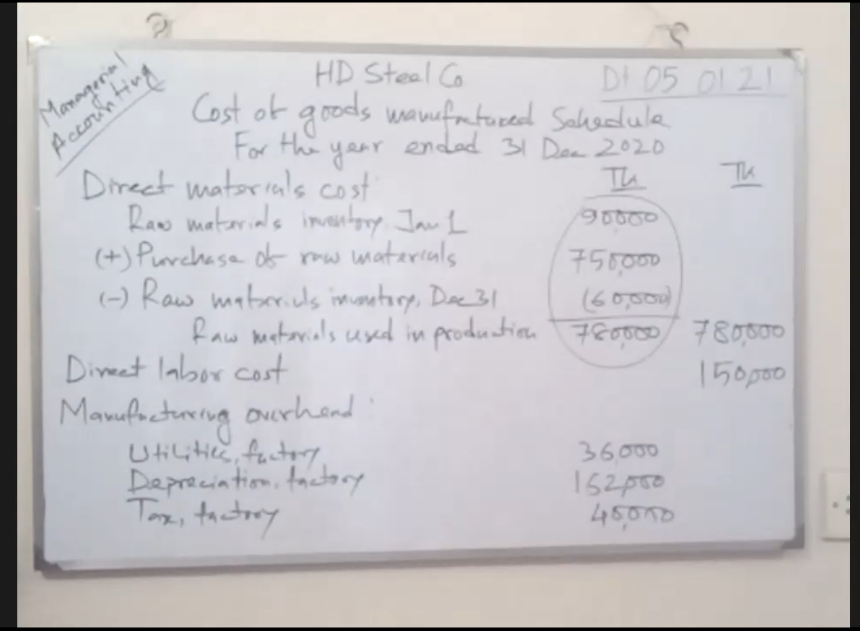 Managerial
Accounting
HD Steel Co
Dt 05 01 21
Cost of goods manufactured Schedule
For the year ended 31 Dec 2020
Direct materials cost: Tk Tk
Raw materials inventory, Jan 1 90,000
(+) Purchase of raw materials 750,000
(-) Raw materials inventory, Dec 31 (60,000)
Raw materials used in production 780,000 780,000
Direct labor cost 150,000
Manufacturing overhead:
Utilities, factory 36,000
Depreciation, factory 162,000
Tax, factory